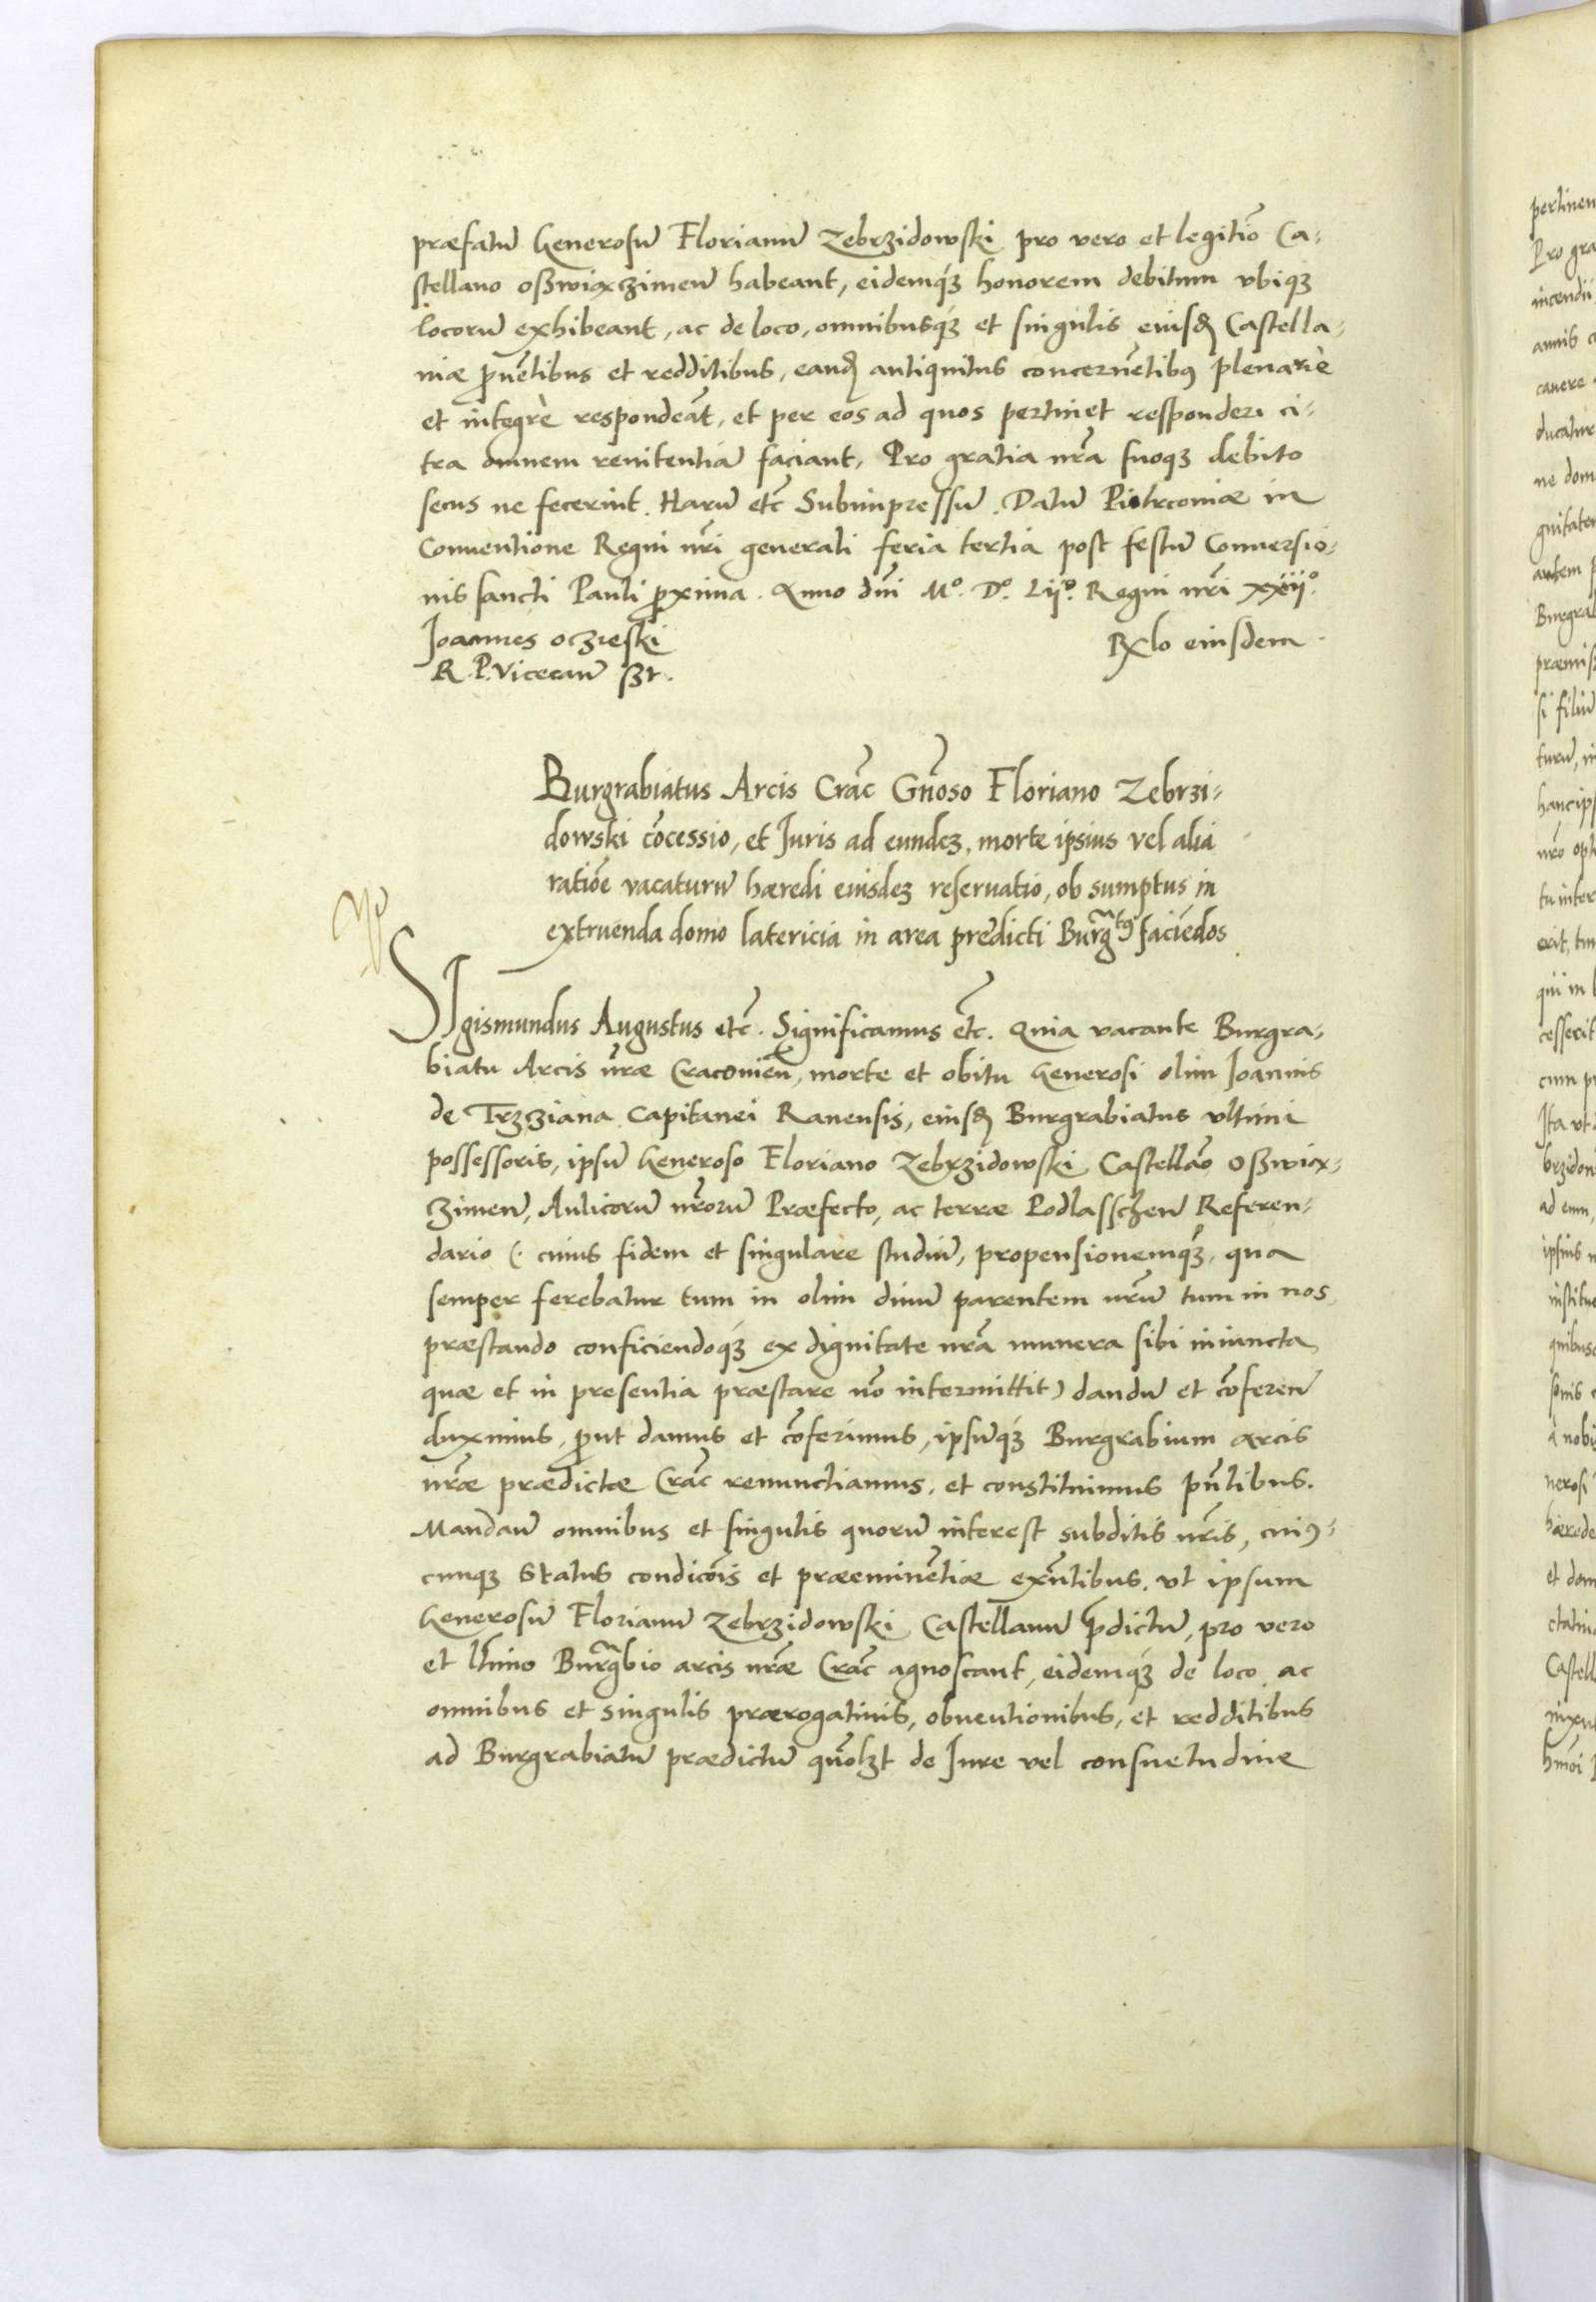 præfatū Generosū Florianū Zebrzidowski pro vero et legitīo Ca-
stellano osswiączimeñ habeant, eidemq́ꝫ honorem debitum vbiqꝫ
locorū exhibeant, ac de loco, omnibusq́ꝫ et singulis eiusđ Castella-
niæ ꝓuētibus et redditibus, eanđ antiquitus concernētibꝰ plenariè
et integrè respondeāt, et per eos ad quos pertinet responderi ci-
tra omnem renitentiā faciant, Pro gratia nr̄a suoqꝫ debito
secus ne fecerint. Harū etc̄ Subimpressū. Datū Piotrconiæ in
Conuentione Regni nr̄i generali feria tertia post festū Conuersio-
nis sancti Pauli ꝓxima. Anno dn̄i Mº. Dº. Lijº. Regni nr̄i xxiijº.
Joannes oczieski
R. P. Vicecanc̄ sst.
Rlo eiusdem
Burgrabiatus Arcis Crac̄ Gn̄oso Floriano Zebrzi-
dowski cōcessio, et Juris ad eundeꝫ, morte ipsius vel alia
ratiōe vacaturū hæredi eiusdeꝫ reseruatio, ob sumptus in
extruenda domo latericia in area predicti Burgr̄atꝰ faciēdos
SIgismundus Augustus etc̄. Significamus etc̄. Quia vacante Burgra-
biatu Arcis nr̄æ Cracouieñ, morte et obitu Generosi olim Joannis
de Trzcziana Capitanei Rauensis, eiusđ Burgrabiatus vltimi
possessoris, ipsū Generoso Floriano Zebrzidowski Castellāo osswią-
czimeñ, Aulicorū nr̄orū Præfecto, ac terræ Podlasscheñ Referen-
dario (: cuius fidem et singulare studiū, propensionemq́ꝫ, qua
semper ferebatur tum in olim diuū parentem nr̄ūm tum in nos
præstando conficiendoq́ꝫ ex dignitate nr̄a munera sibi iniuncta,
quæ et in presentia præstare nō intermittit) dandū et cōfereñ
duximus, ꝓut damus et cōferimus, ipsūq́ꝫ Burgrabium arcis
nr̄æ prædictæ Crac̄ renunctiamus, et constituimus pn̄tibus.
Mandañ omnibus et singulis quorū interest subditis nr̄is, cuiꝰ-
cunqꝫ Status condicōis et præeminētiæ exn̄tibus, vt ipsum
Generosū Florianū Zebrzidowski Castellanū p̄dictū, pro vero
et lt̄imo Burgr̄bio arcis nr̄æ Crac̄ agnoscant, eidemq́ꝫ de loco, ac
omnibus et singulis prærogatiuis, obuentionibus, et redditibus
ad Burgrabiatū prædictū quōlꝫt de Jure vel consuetudine